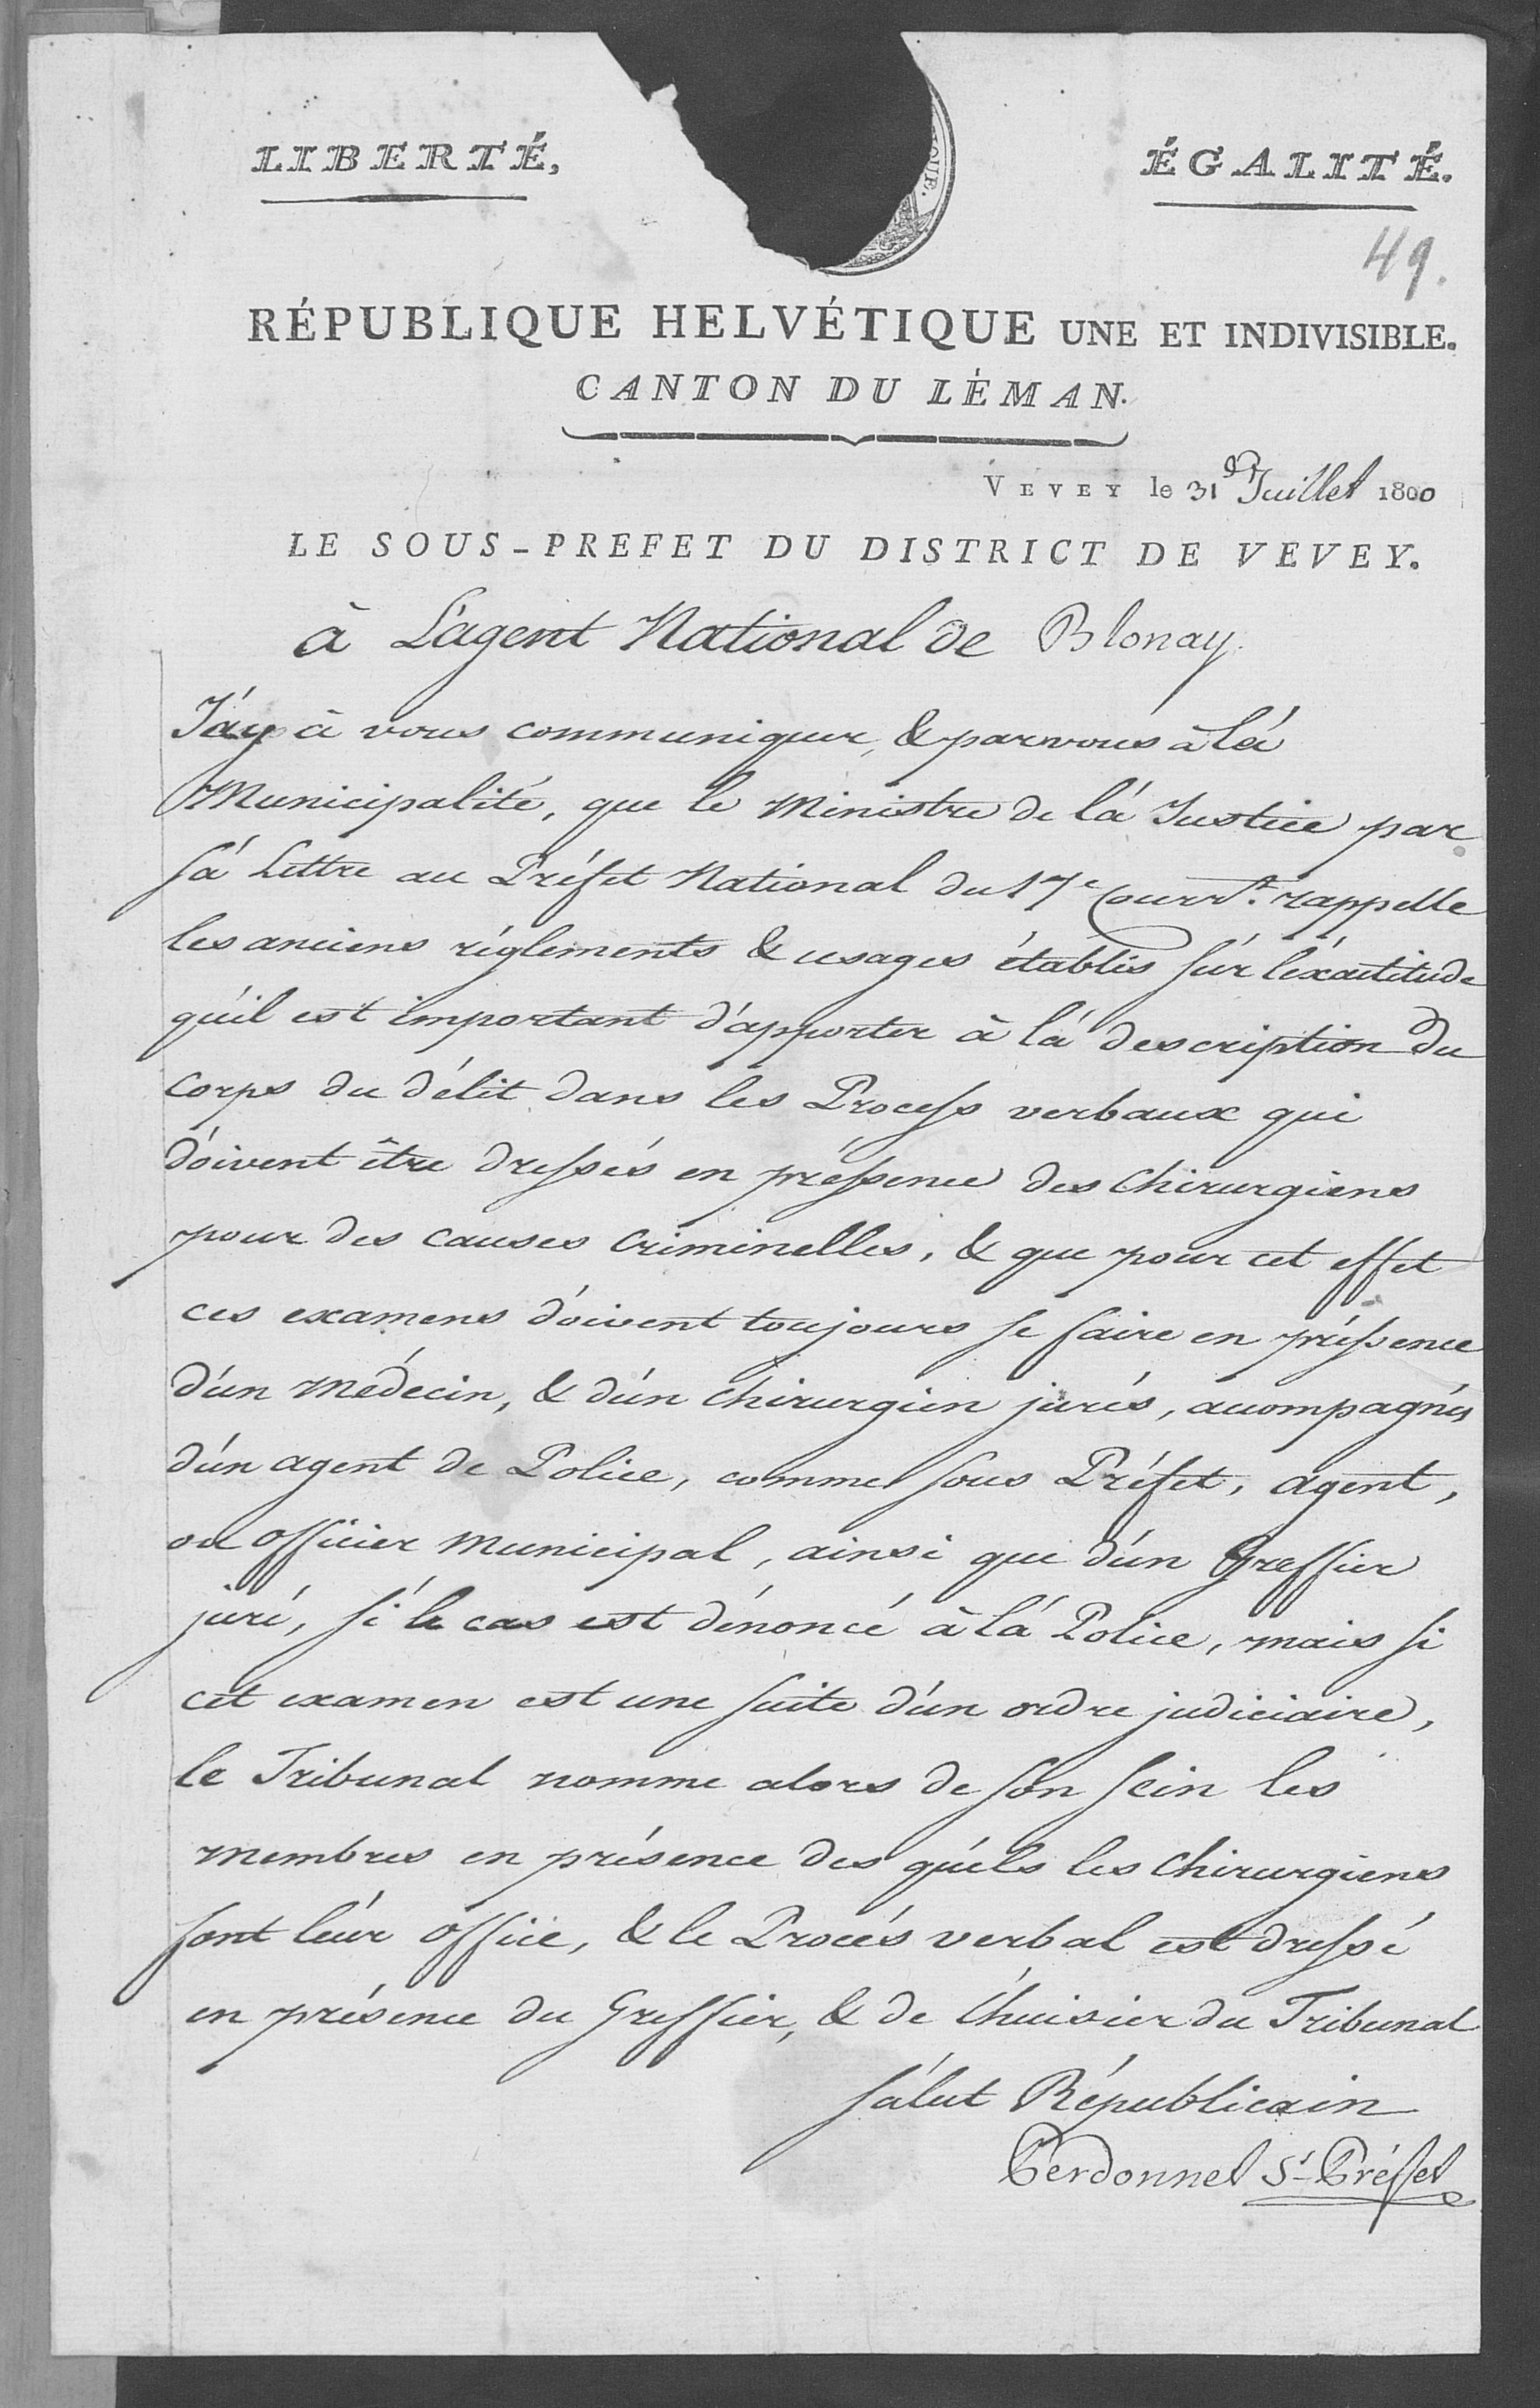 LIBERTÉ,
ÉGALITÉ.
QUE.
49.
RÉPUBLIQUE HELVÉTIQUE UNE ET INDIVISIBLE.
CANTON DU LÉMAN.
VEVEY le 31 Juillet 1800
LE SOUS-PREFET DU DISTRICT DE VEVEY.
à L'agent National de Blonay.
J'ay à vous communiquer, & par vous à lá
Municipalité, que le Ministre de lá Justice par
sá Lettre au Préfet National du 17e Courrt. rappelle
les anciens réglements & usages établis súr l'éxactitude
qu'il est important d'apporter à lá description du
corps du délit dans les Process verbaux qui
dóivent être dressés en préssence des Chirurgiens
pour des causes Criminelles, & que pour cet effet
ces examens dóivent toujours se faire en préssence
d'ún Médecin, & d'ún chirurgien jurés, acompagnés
d'ún agent de Police, comme sous Préfet, agent,
ou officier Municipal, ainsi que d'ún Greffier
juré, si le cas est dénoncé à lá Police, mais si
cet examen est une suite d'ún ordre judiciaire,
le Tribunal nomme alors de son sein les
membres en présence des quéls les Chirurgiens
font léur office, & le Procés verbal est dressé
en présence du Greffier, & de l'huisier du Tribunal
sálut Républicain
Perdonnet St-Préffet